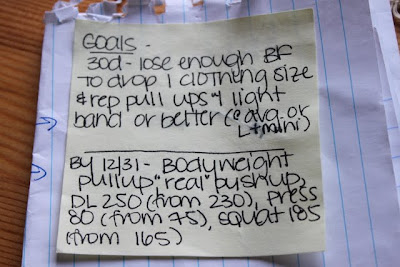 GOALS -
30d - lose enough BF
to drop 1 clothing size
& rep pull ups 4 light
band or better (@ avg. or
L + mini)
By 12/31 - Bodyweight
pullup, "real" pushup,
DL 250 (from 230), press
80 (from 75), squat 185
(from 165)